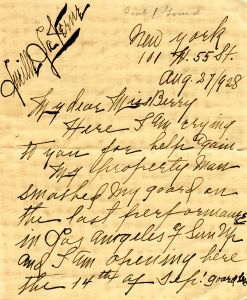 New York
101 W. 55 St.
Aug. 27/928
My dear Miss Berry
Here I am crying
to you for help again
My Property Man
smashed my goard on
the last performance
in Los Angeles of Sun Up
and I am opening here
the 14th of Sep.